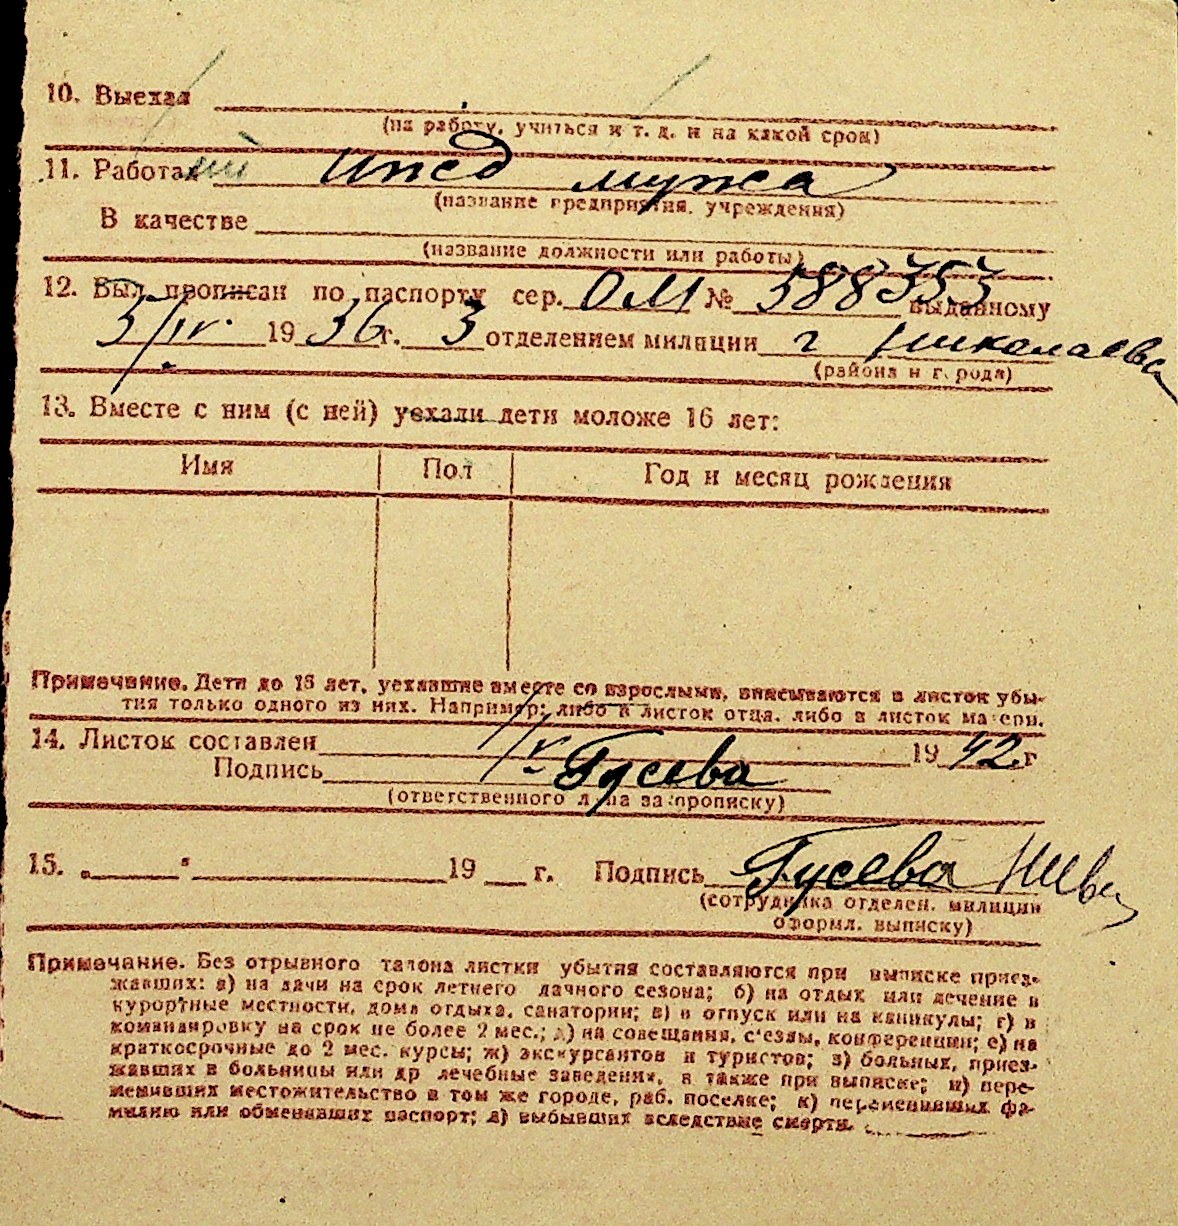 10. Выехал
(на работу, учиться и т. д. и на какой срок)
11. Работал ижд мужа
(название предприятия, учреждения)
В качестве
(название должности или работы)
12. Был прописан по паспорту сер. ОМ № 588353 выданному
5/IV. 1936г. 3 отделением милиции г Николаева
(района и города)
13. Вместе с ним (с ней) уехали дети моложе 16 лет:
Имя Пол Год и месяц рождения
Примечание. Дети до 16 лет, уехавшие вместе со взрослыми, вписываются в листок убы-
тия только одного из них. Например: либо в листок отца, либо в листок матери.
14. Листок составлен 1942 г
Подпись Гусева
(ответственного лица за прописку)
15. „ “ 19 г. Подпись Гусева
(сотрудника отделен. милиции
оформл. выписку)
Примечание. Без отрывного талона листки убытия составляются при выписке приез-
жавших: а) на дачи на срок летнего дачного сезона; б) на отдых или лечение в
курортные местности, дома отдыха, санатории; в) в отпуск или на каникулы; г) в
командировку на срок не более 2 мес.; д) на совещания, с'езды, конференции; е) на
краткосрочные до 2 мес. курсы; ж) экскурсантов и туристов; з) больных, приез-
жавших в больницы или др лечебные заведения, а также при выписке; и) пере-
менивших местожительство в том же городе, раб. поселке; к) переменивших фа-
милию или обменявших паспорт; л) выбывших вследствие смерти.